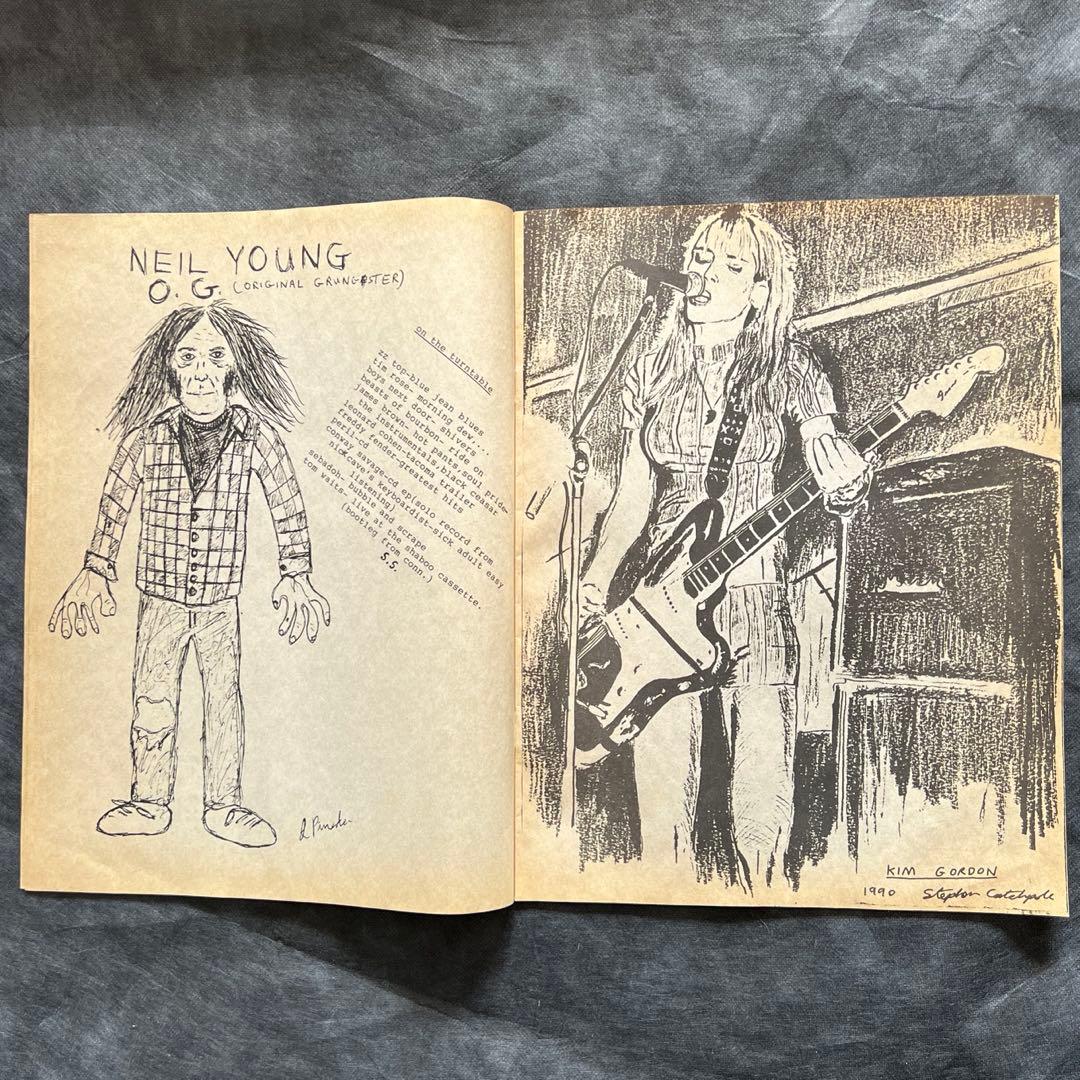 NEIL YOUNG
O. G. (ORIGINAL GRUNGSTER)
on the turntable
zz top-blue jean blues
tim rose- morning dew...
boys next door- shivers
beasts of bourbon- ride on
james brown- hot pants, soul pride-
the instrumentals, black ceasar
leonard cohen-tacoma trailer
freddy fender-greatest hits
peril-cd
conway savage-cd ep(solo record from
nick cave's keyboardist-sick adult easy
listening)
sebadoh- bubble and scrape
tom waits- live at the shaboo cassette.
(bootleg from conn.)
S.S.
KIM GORDON
1990 Stephen Catchpole